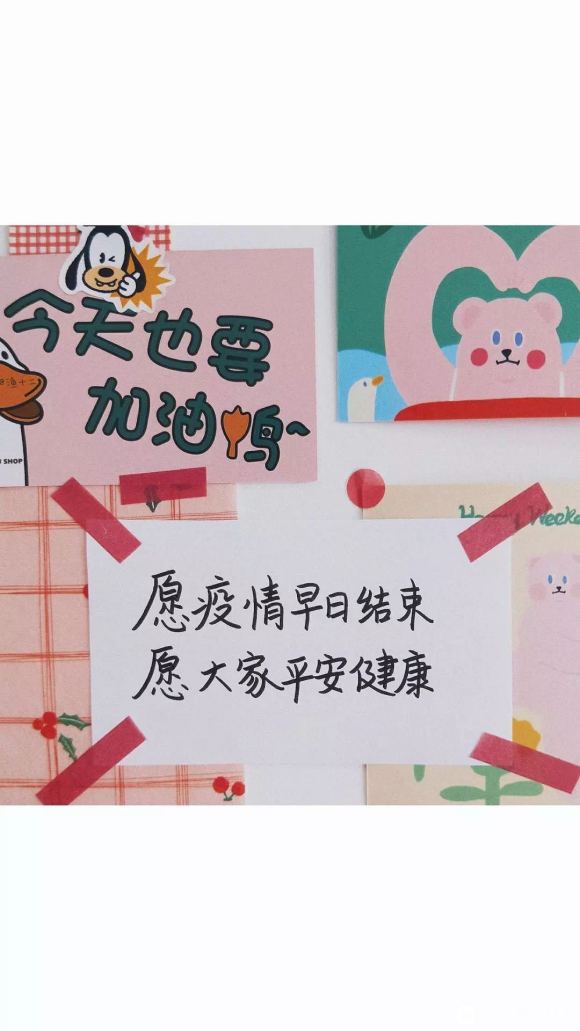 今天也要
加油鸭~
SHOP
Happy Weeke
愿疫情早日结束
愿大家平安健康